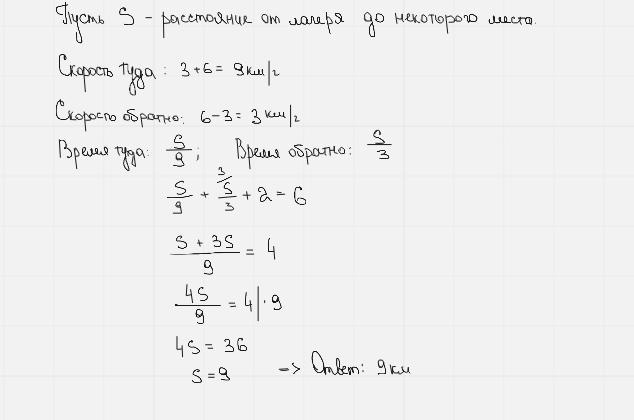 Пусть S - расстояние от лагеря до некоторого места.
Скорость туда: 3+6= 9 км/г
Скорость обратно: 6-3= 3 км/г
Время туда: S/9; Время обратно: S/3
S/9 + S/3 (3) + 2 = 6
(S + 3S)/9 = 4
4S/9 = 4 | · 9
4S = 36
S = 9 -> Ответ: 9 км